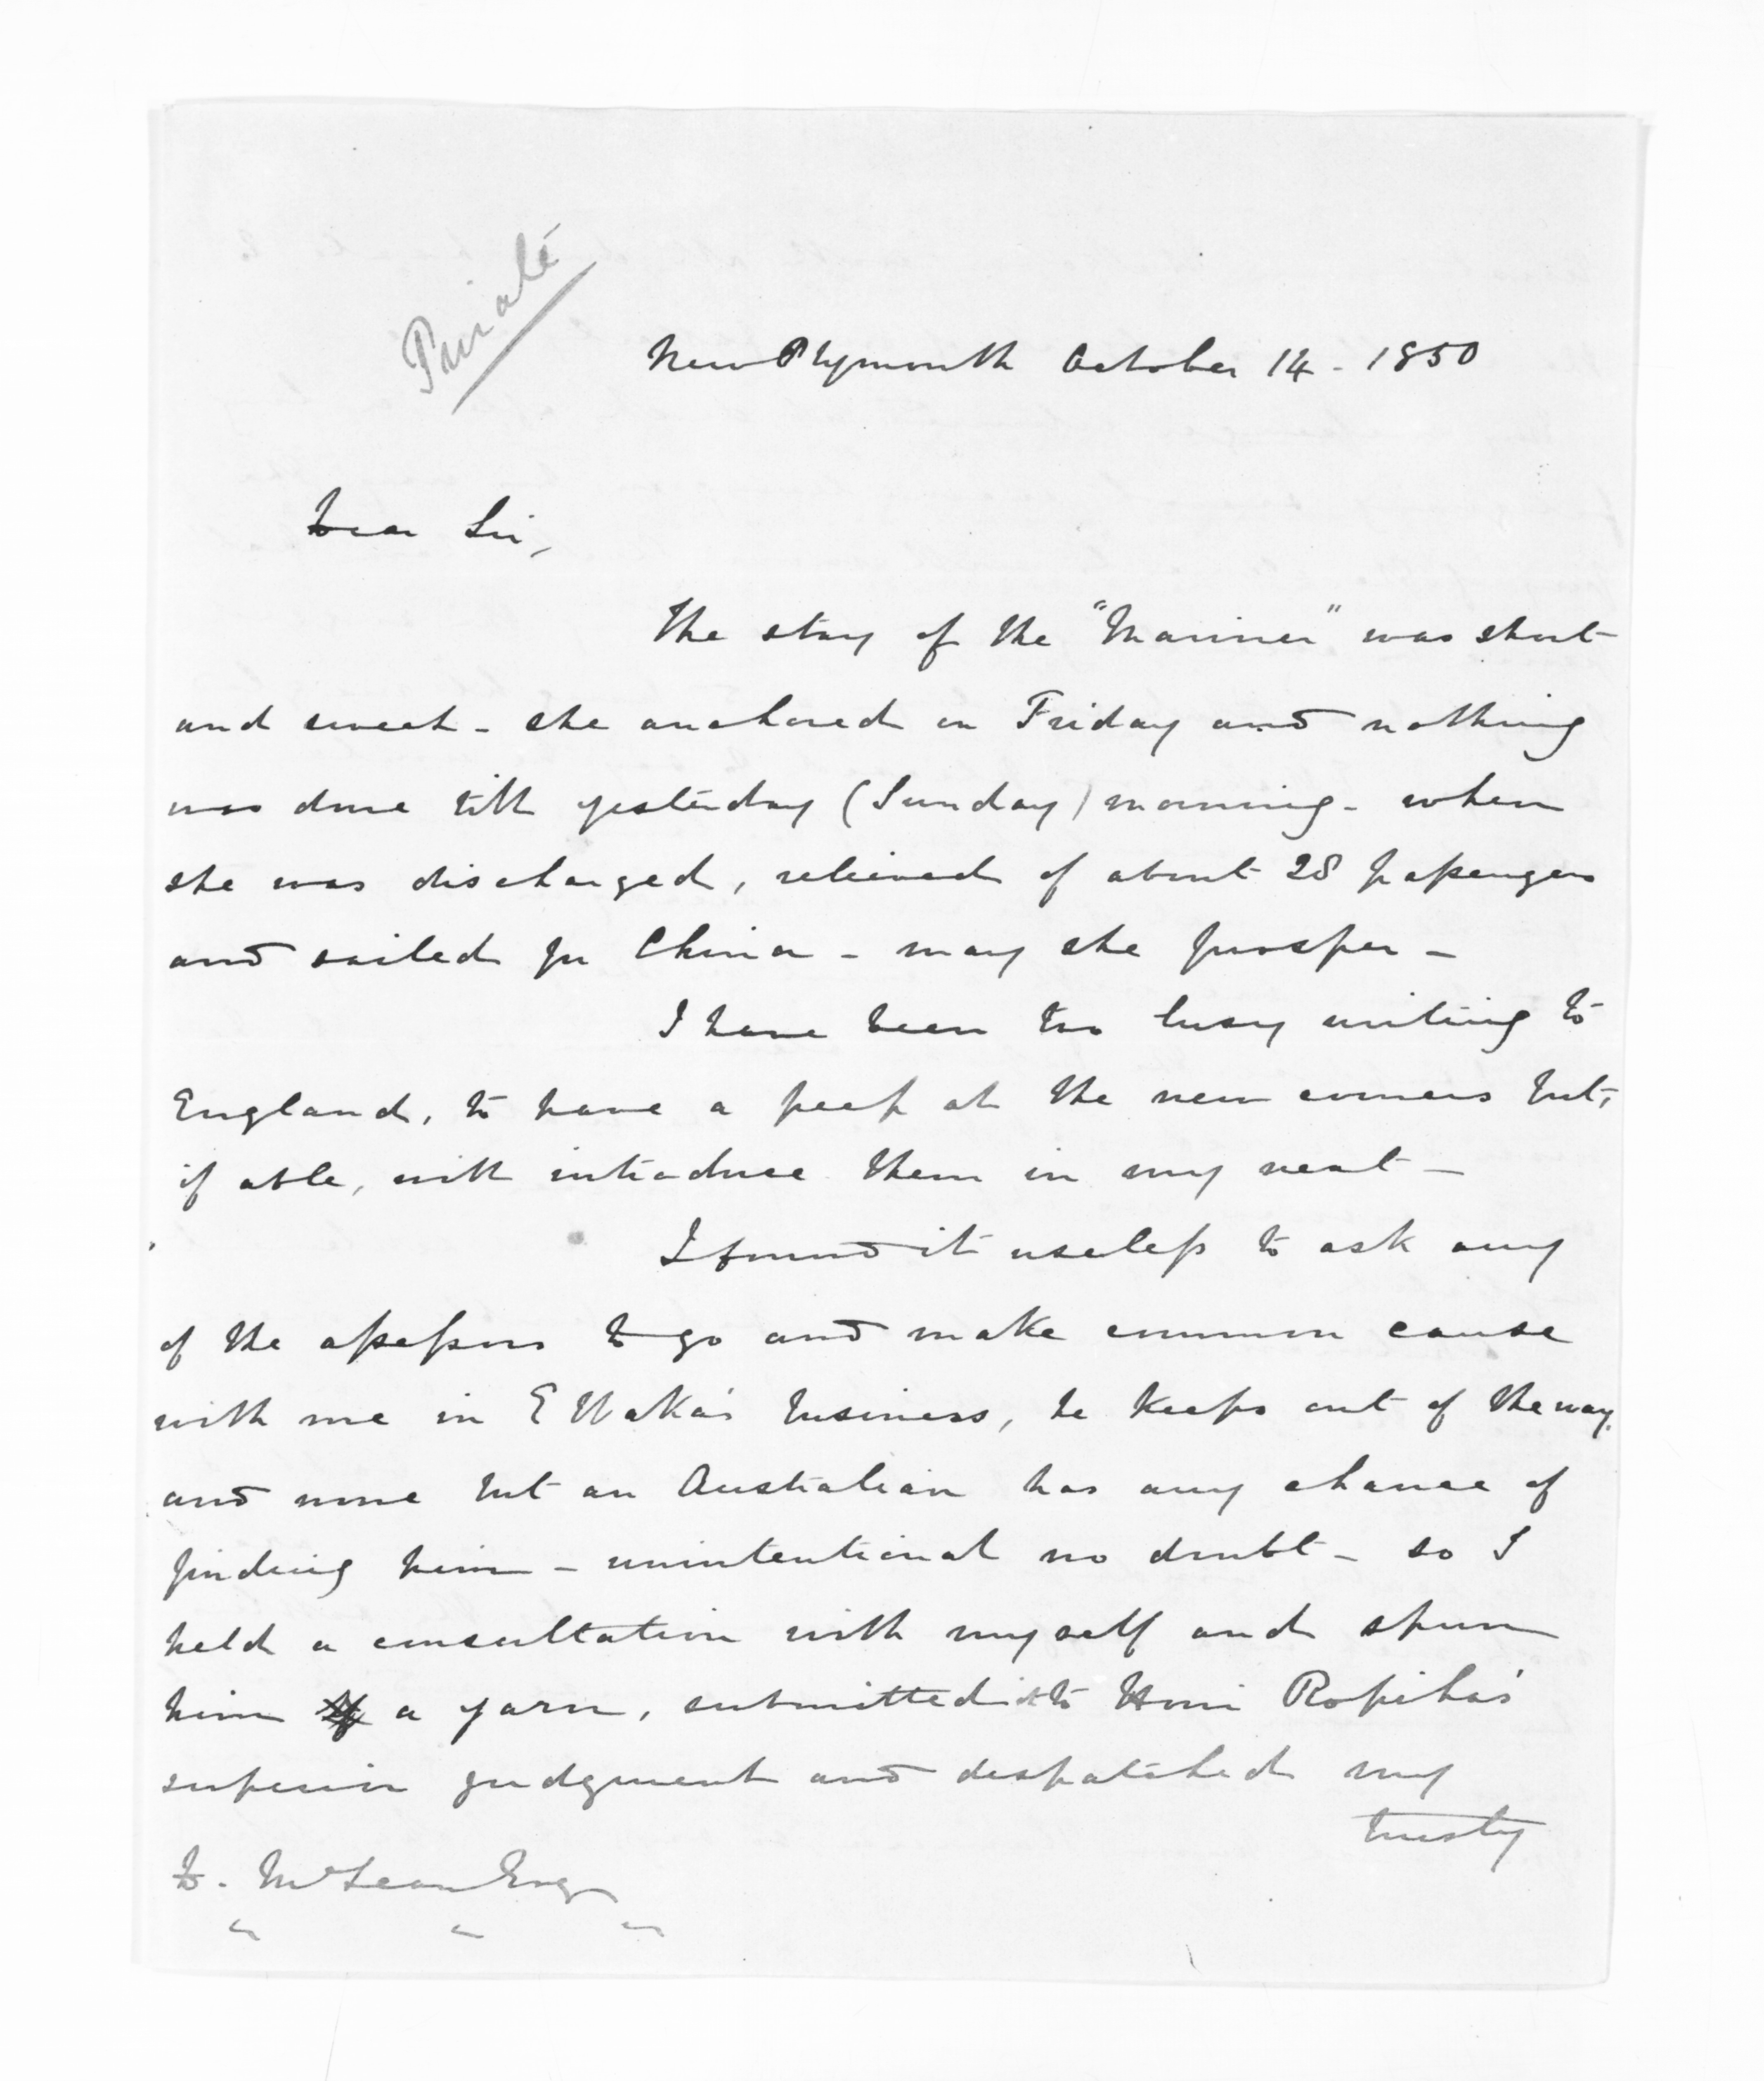 Private
New Plymouth October 14 - 1850
Dear Sir,
The stay of the "Mariner" was short
and sweet - she anchored on Friday and nothing
was done till yesterday (Sunday) morning - when
she was discharged, relieved of about 28 passengers
and sailed for China - may she prosper -
I have been too busy writing to
England, to have a peep at the new comers but,
if able, will introduce them in my next -
I found it useless to ask any
of the assessors to go and make common cause
with me in E Waka's business, he keeps out of the way.
and none but an Australian has any chance of
finding him - unintentional no doubt - so I
held a consultation with myself and spun
him a yarn, submitted it to Honi Ropiha's
superior judgment and despatched my
trusty
D. McLean Esq
" " "